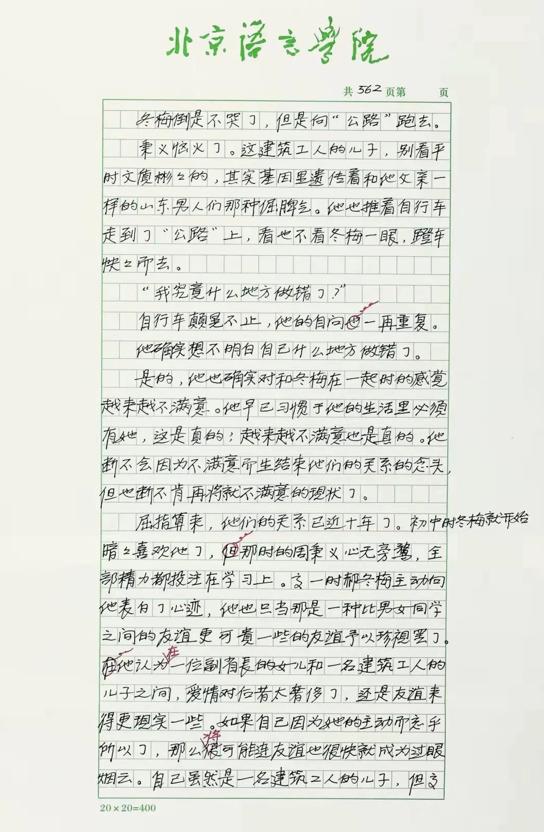 北京语言学院
共362页第 页
冬梅倒是不哭了，但是向“公路”跑去。
秉义恼火了。这建筑工人的儿子，别看平
时文质彬々的，其实基因里遗传着和他父亲一
样的山东男人们那种倔脾气。他也推着自行车
走到了“公路”上，看也不看冬梅一眼，蹬车
快々而去。
“我究竟什么地方做错了？”
自行车颠晃不止，他的自问也一再重复。
他确实想不明白自己什么地方做错了。
是的，他也确实对和冬梅在一起时的感觉
越来越不满意。他早已习惯于他的生活里必须
有她，这是真的；越来越不满意也是真的。他
断不会因为不满意而生结束他们的关系的念头，
但也断不肯再将就不满意的现状了。
屈指算来，他们的关系已近十年了。初中时冬梅就开始
暗々喜欢他了，但那时的周秉义心无旁骛，全
部精力都投注在学习上。高一时郝冬梅主动向
他表白了心迹，他也只当那是一种比男女同学
之间的友谊更可贵一些的友谊予以珍视罢了。
在他认为在一位副省长的女儿和一名建筑工人的
儿子之间，爱情对后者太奢侈了，还是友谊来
得更现实一些。如果自己因为她的主动而忘乎
所以了，那么将可能连友谊也很快就成为过眼
烟云。自己虽然是一名建筑工人的儿子，但文
20×20=400